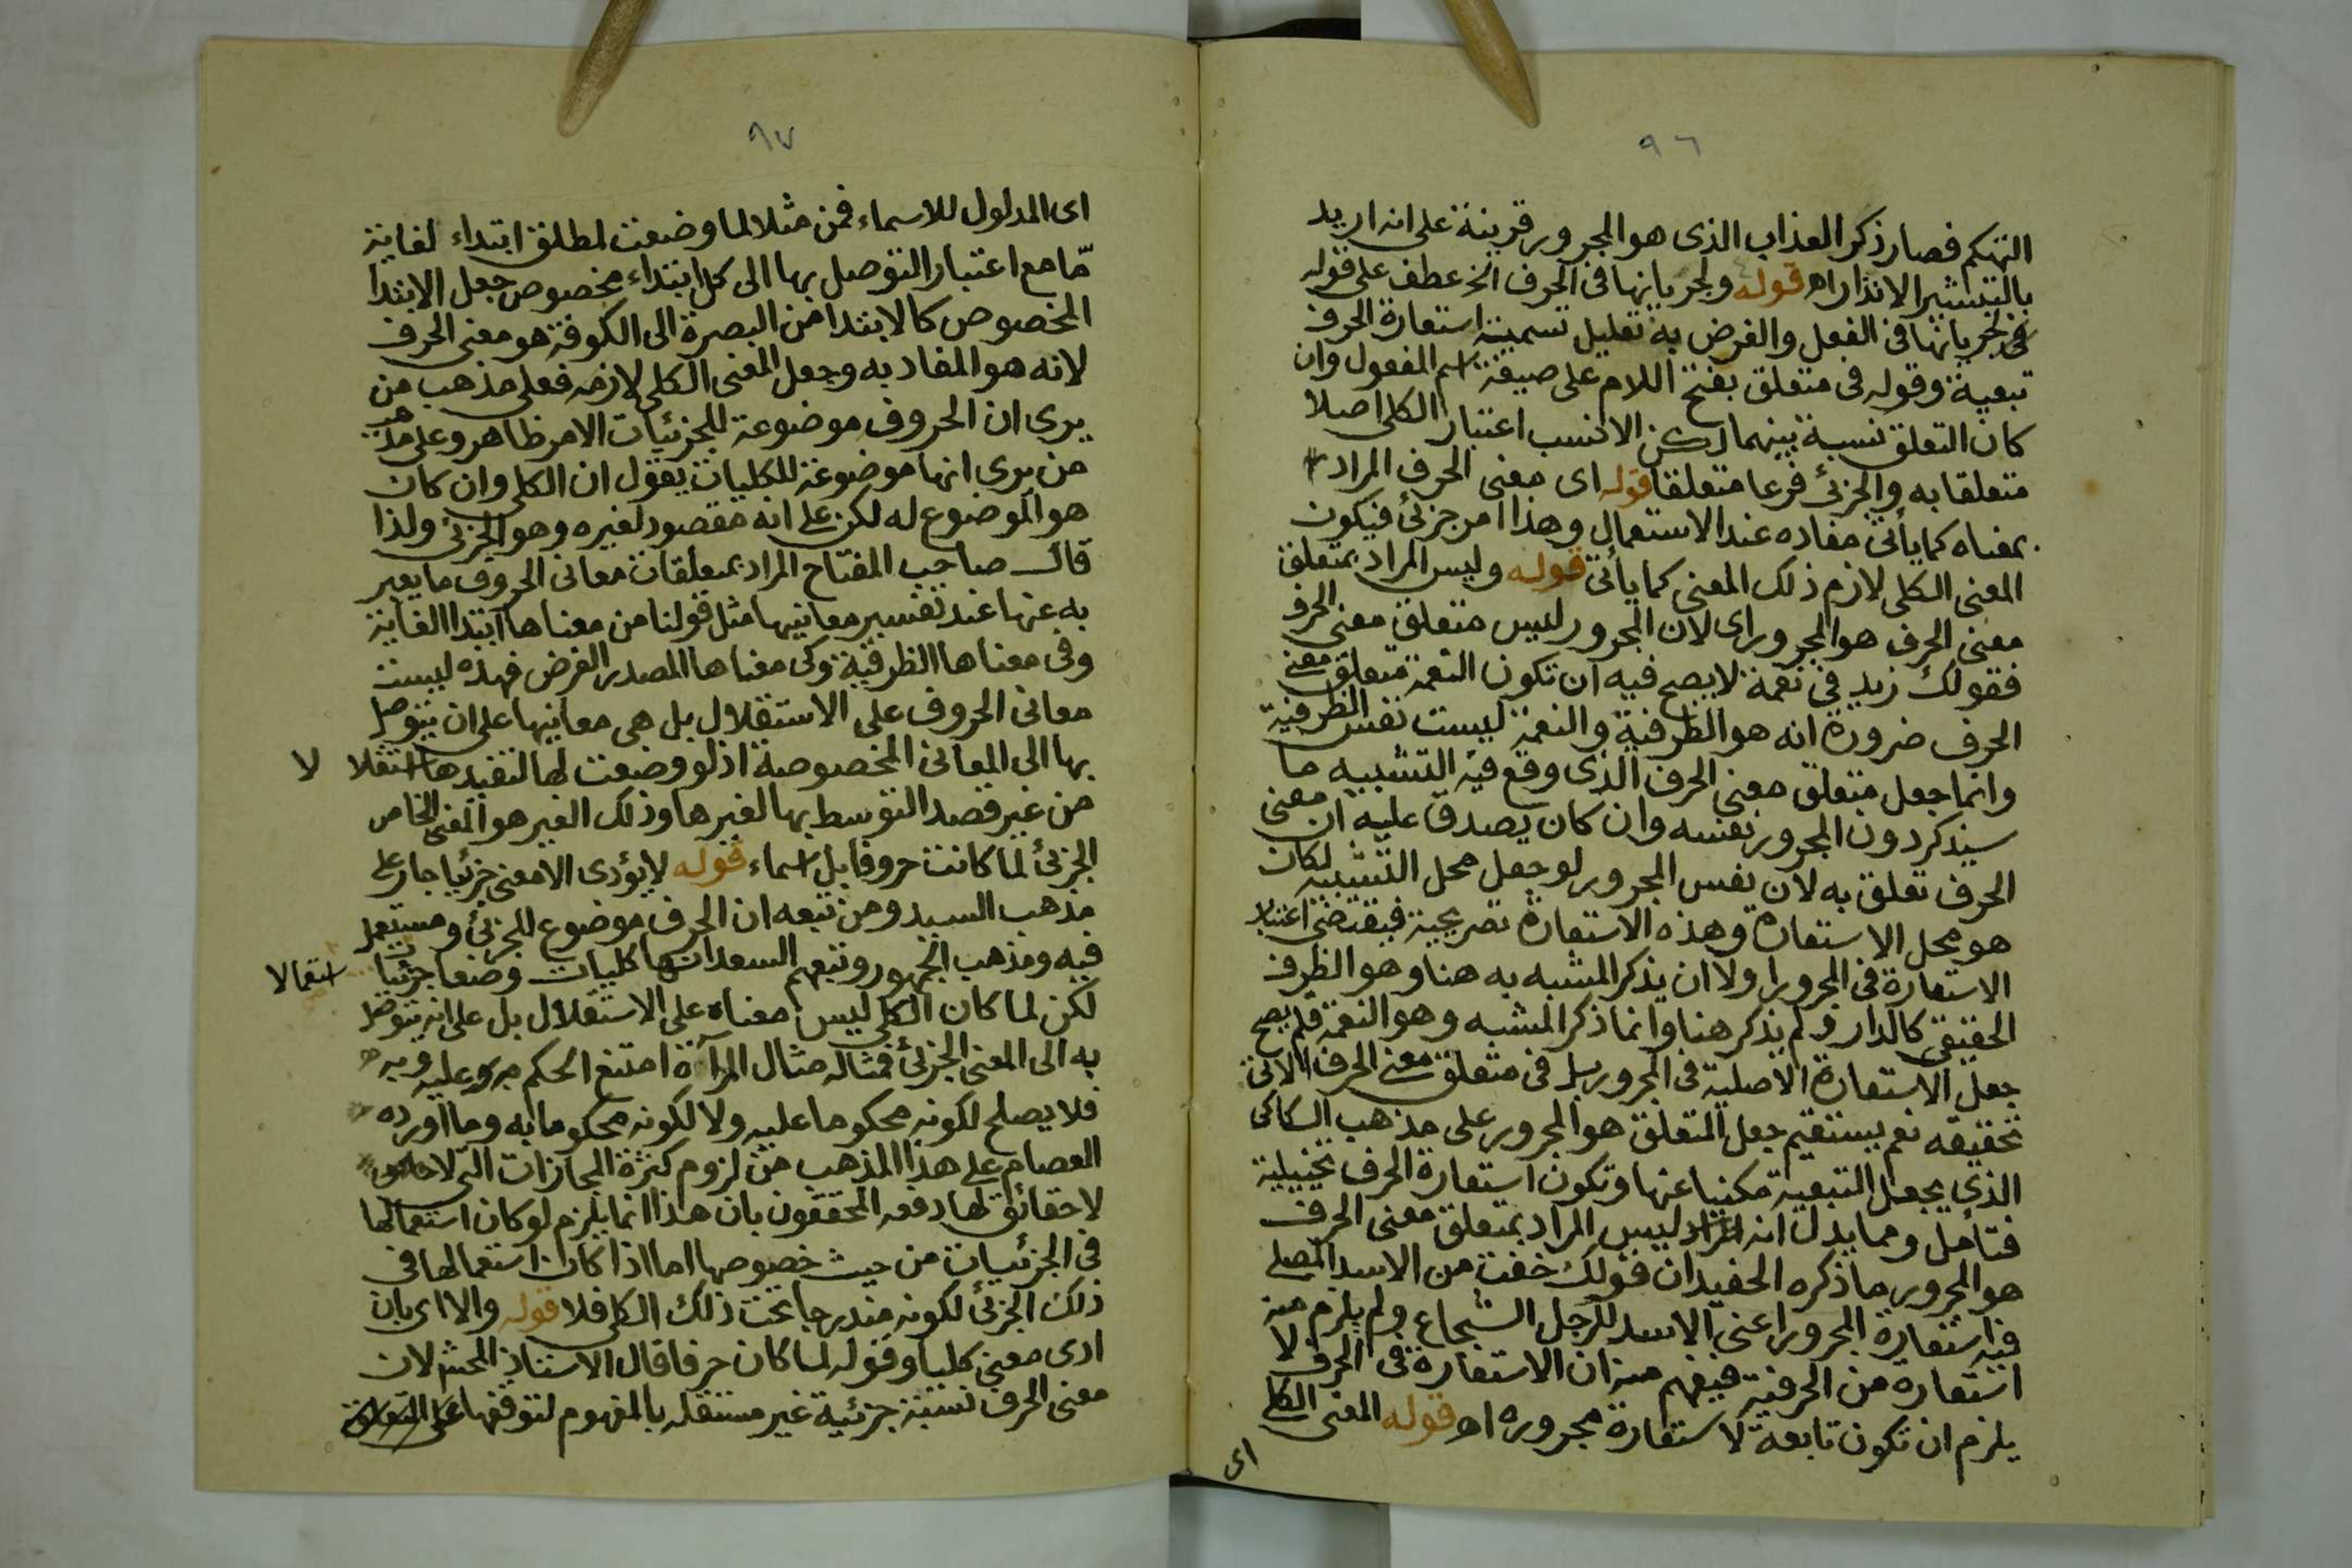 ٩٦
التهكم فصار ذكر العذاب الذى هو المجرور قرينة على انه اريد
بالتبشير الانذار اه قوله ولجريانها فى الحرف الخ عطف على قوله
لجريانها فى الفعل والغرض به تعليل تسمية استعارة الحرف
تبعية وقوله فى متعلق بفتح اللام على صيغة اسم المفعول وان
كان التعلق نسبة بينهما لكن الانسب اعتبار الكلى اصلا
متعلقا به والجزئ فرعا متعلقا قوله اى معنى الحرف المراد
بمعناه كما يأتى مفاده عند الاستعمال وهذا امر جزئ فيكون
المعنى الكلى لازم ذلك المعنى كما يأتى قوله وليس المراد بمتعلق
معنى الحرف هو المجرور اى لان المجرور ليس متعلق معنى الحرف
فقولك زيد فى نعمة لا يصح فيه ان تكون النعمة متعلق معنى
الحرف ضرورة انه هو الظرفية والنعمة ليست نفس الظرفية
وانما جعل متعلق معنى الحرف الذى وقع فيه التشبيه ما
سيذكر دون المجرور نفسه وان كان يصدق عليه ان معنى
الحرف تعلق به لان نفس المجرور لو جعل محل التشبيه لكان
هو محل الاستعارة وهذه الاستعارة تصريحية فيقتضى اعتبار
الاستعارة فى المجرور اولا ان يذكر المشبه به هنا وهو الظرف
الحقيقى كالدار ولم يذكر هنا وانما ذكر المشبه وهو النعمة فلم يصح
جعل الاستعارة الاصلية فى المجرور بل فى متعلق معنى الحرف الاتى
تحقيقه نعم يستقيم جعل المتعلق هو المجرور على مذهب السكاكى
الذى يجعل التبعية مكنيا عنها وتكون استعارة الحرف تخييلية
فتأمل ومما يدل انه ليس المراد بمتعلق معنى الحرف
هو المجرور ما ذكره الحفيد ان قولك خفت من الاسد المصلى
فيه استعارة المجرور اعنى الاسد للرجل الشجاع ولم يلزم منه
استعارة من الحرفية فيفهم منه ان الاستعارة فى الحرف لا
يلزم ان تكون تابعة لاستعارة مجروره اه قوله المعنى الكلى
اى
٩٧
اى المدلول للاسماء فمن مثلا لما وضعت لمطلق ابتداء لغاية
مّا مع اعتبار التوصل بها الى كل ابتداء مخصوص جعل الابتدا
المخصوص كالابتدا من البصرة الى الكوفة هو معنى الحرف
لانه هو المفاد به وجعل المعنى الكلى لازمه فعلى مذهب من
يرى ان الحروف موضوعة للجزئيات الامر ظاهر وعلى مذهب
من يرى انها موضوعة للكليات يقول ان الكلى وان كان
هو الموضوع له لكن على انه مقصود لغيره وهو الجزئى ولذا
قال صاحب المفتاح المراد بمتعلقات معانى الحروف ما يعبر
به عنها عند تفسير معانيها مثل قولنا من معناها ابتدا الغاية
وفى معناها الظرفية وكى معناها المصدر الغرض فهذه ليست
معانى الحروف على الاستقلال بل هى معانيها على ان يتوصل
بها الى المعانى المخصوصة اذ لو وضعت لها لتفيدها استقلا لا
من غير قصد التوسط بها لغيرها وذلك الغير هو المعنى الخاص
الجزئ لما كانت حروفا بل اسماء قوله لا يؤدى الا معنى جزئيا جار على
مذهب السيد ومن تبعه ان الحرف موضوع للجزئ ومستعمل
فيه ومذهب الجمهور وتبعهم السعد انها كليات وضعا جزئيات استعمالا
لكن لما كان الكلى ليس معناه على الاستقلال بل على انه يتوصل
به الى المعنى الجزئ فمثاله مثال المرآة امتنع الحكم عليه وبه
فلا يصلح لكونه محكوما عليه ولا لكونه محكوما به وما اورده
العصام على هذا المذهب من لزوم كثرة المجازات التى
لا حقائق لها دفعه المحققون بان هذا انما يلزم لو كان استعمالها
فى الجزئيات من حيث خصوصها اما اذا كان استعمالها فى
ذلك الجزئ لكونه مندرجا تحت ذلك الكلى فلا قوله والا اى بان
ادى معنى كليا وقوله لما كان حرفا قال الاستاذ المحشى لان
معنى الحرف نسبة جزئية غير مستقلة بالمفهوم لتوقفها على